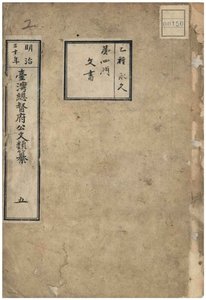 2
00150
乙種 永久
第四門
文書
明治
三十年
臺灣總督府公文類纂
五